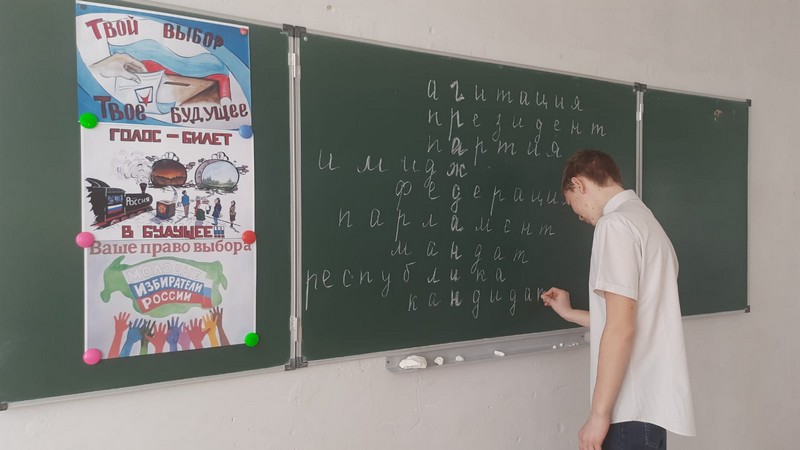 Твой выбор
Твое будущее
ГОЛОС – БИЛЕТ
РОССИЯ
В БУДУЩЕЕ!!!
Ваше право выбора
МОЛОДЫЕ
ИЗБИРАТЕЛИ
РОССИИ
агитация
президент
партия
имидж
федерация
парламент
мандат
республика
кандидат